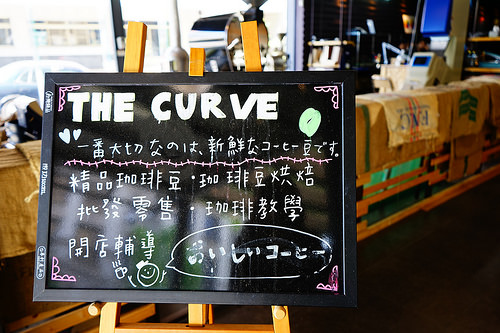 THE CURVE
一番大切なのは、新鮮なコーヒー豆です。
精品珈琲豆・珈琲豆烘焙
批發零售・珈琲教學
開店輔導
おいしいコーヒー